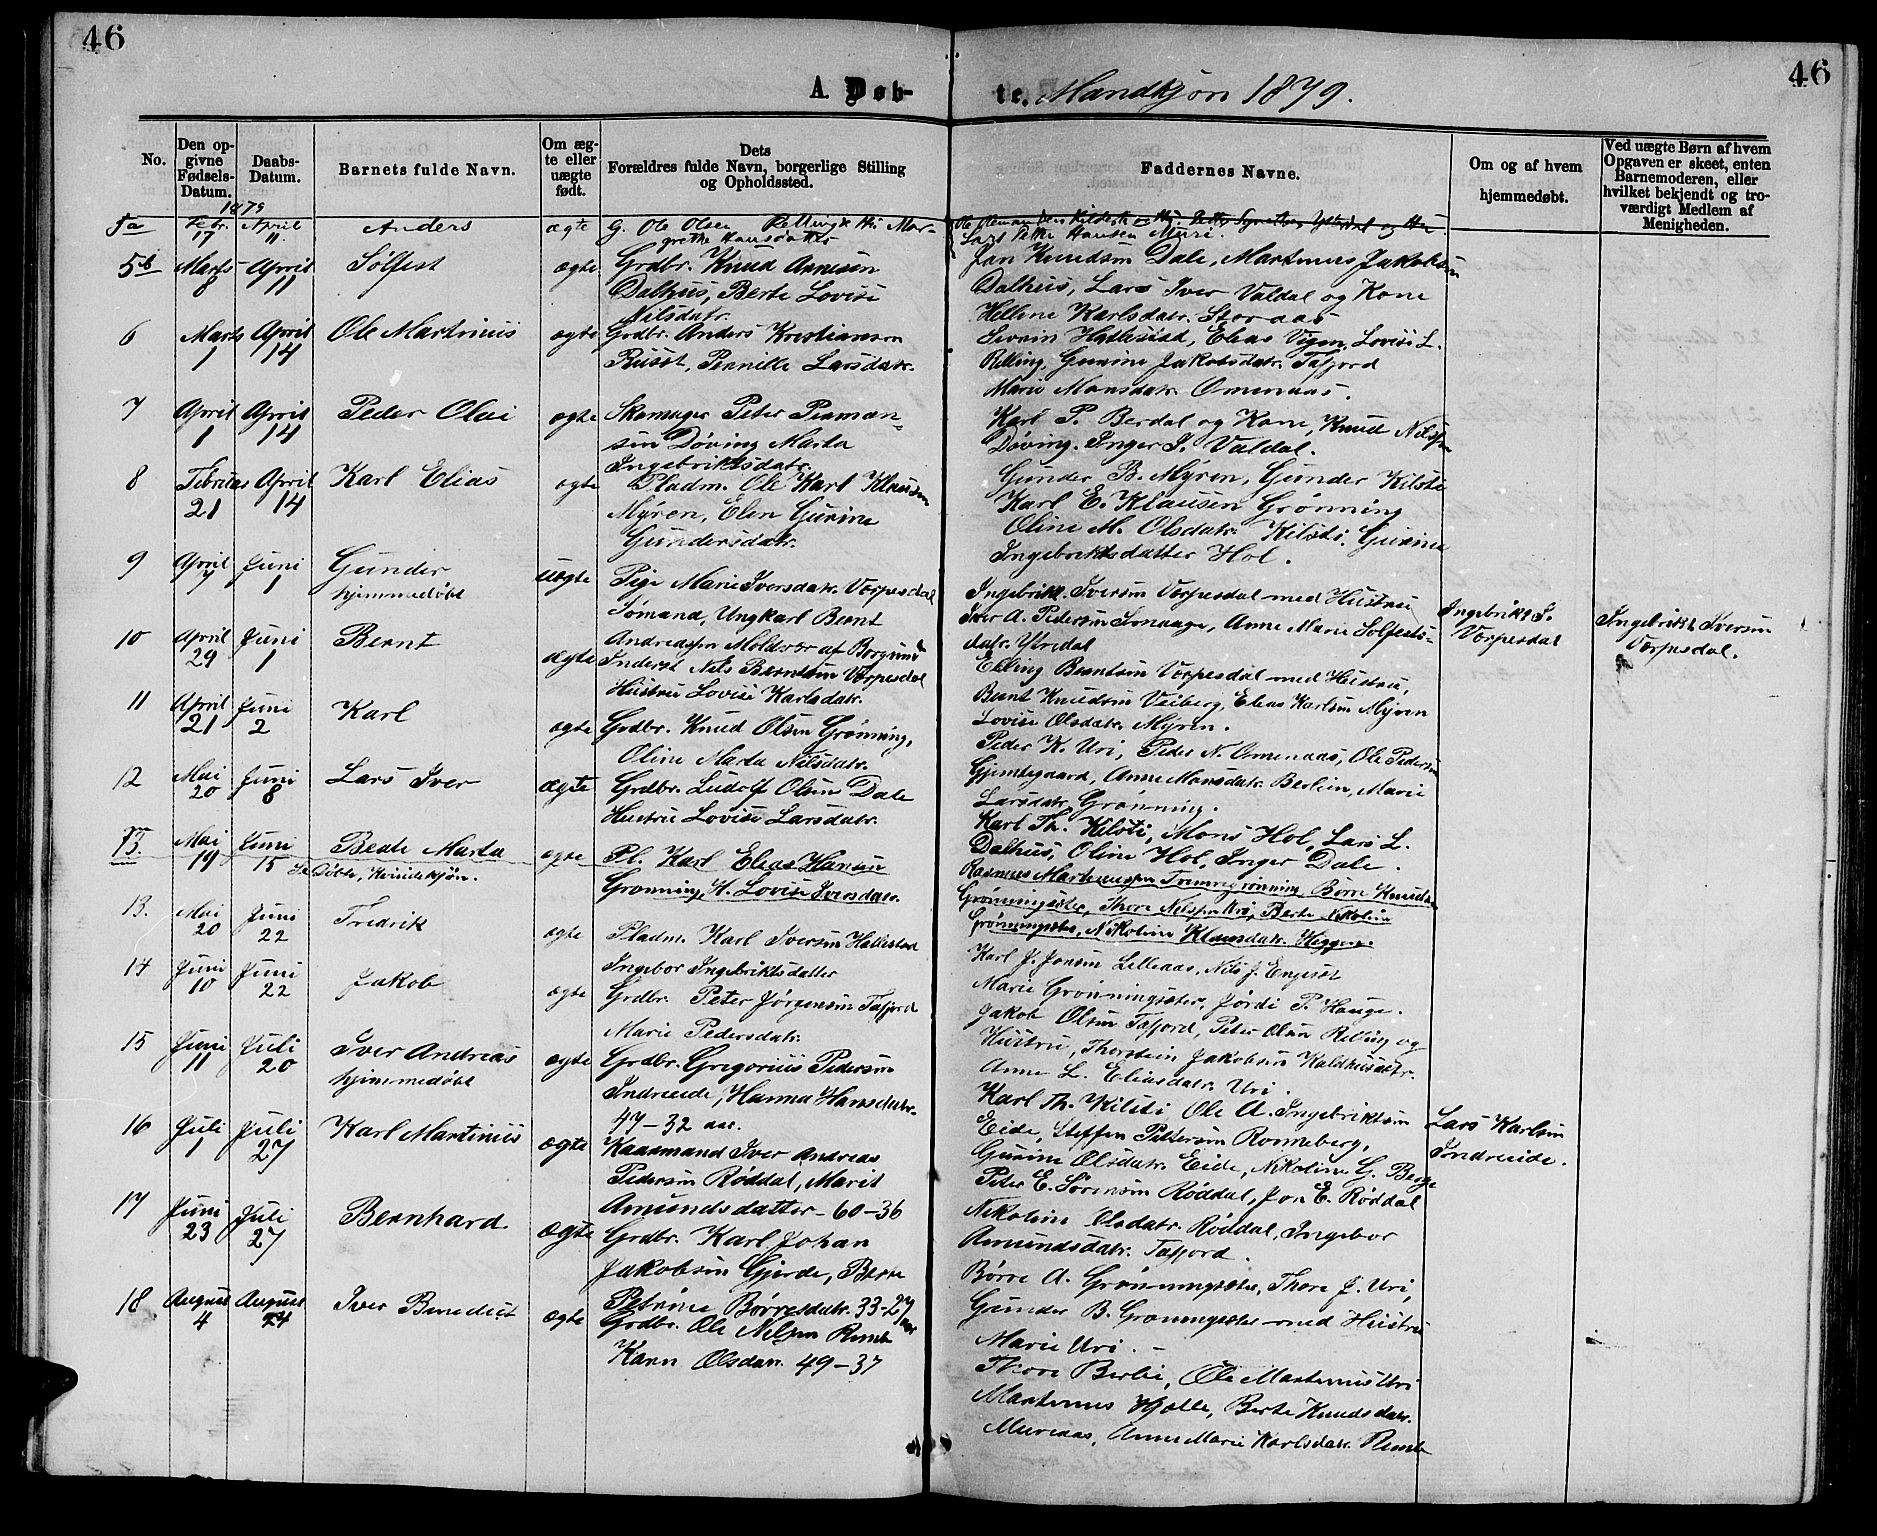 46
46
A. Døb-
te. Mandkjøn 1879.
No.
Den op-
givne
Fødsels-
Datum.
Daabs-
Datum.
Barnets fulde Navn.
Om æg-
te eller
uægte
født.
Dets
Forældres fulde Navn, borgerlige Stilling
og Opholdssted.
Faddernes Navne.
Om og af hvem
hjemmedøbt.
Ved uægte Børn af hvem
Opgaven er skeet, enten
Barnemoderen, eller
hvilket bekjendt og tro-
værdigt Medlem af
Menigheden.
1879
5a Febr. 17 April 11 Anders ægte G. Ole Olsen Relling Mar-
grethe Hansdatter
Lars Petter Hansen Muri.
5b Marts 8 April 11 Sølfest ægte Grdbr. Knud Arnesen
Dalhus, Berte Lovise
Nilsdatr.
Jon Knudsøn Dale, Martinus Jakobsøn
Dalhus, Lars Iver Valdal og Kone
Helline Karlsdatr. Storaas
6 Marts 1 April 14 Ole Martinus ægte Grdbr. Anders Kristiansøn
Ruset, Pernille Larsdatr.
Severin Hatlestad, Elias Vigen, Lovise L.
Relling, Gurine Jakobsdatr. Tafjord
Marie Monsdatr. Omenaas.
7 April 1 April 14 Peder Olai ægte Skomager Peter
Døving Marta
Ingebriktsdatr.
Karl P. Berdal og Kone, Knud Nilssøn
Døving. Inger I. Valdal.
8 Februar 21 April 14 Karl Elias ægte Pladm. Ole Karl Klausøn
Myren, Elen Gurine
Gundersdatr.
Gunder B. Myren, Gunder Kilsti
Karl E. Klausen Grønning
Oline M. Olsdatr. Kilsti. Gurine
Ingebriktsdatter Hol.
9 April 7 Juni 1 Gunder
hjemmedøbt
uægte Pige Marie Iversdatr. Vorpesdal
Sømand, Ungkarl Bernt
Andreassen Moldvær af Borgund
Ingebrikt Iversøn Vorpesdal med Hustru
Iver A. Pedersøn, Anne Marie Solfests-
datr. Ytredal
Ingebrikt I.
Vorpesdal
Ingebrikt Iversøn
Vorpesdal.
10 April 29 Juni 1 Bernt ægte Inderst Nils Berntsøn Vorpesdal
Hustru Lovise Karlsdatr.
Elling Berntsøn Vorpesdal med Hustru,
Bernt Knudsøn Veiberg, Elias Karlsøn Myren
Lovise Olsdatr. Myren.
11 April 21 Juni 2 Karl ægte Grdbr. Knud Olsen Grønning,
Oline Marta Nilsdatr.
Peder K. Uri, Peder N. Omenaas, Ole Pedersøn
Gjerdegaard, Anne Monsdatr. Berlien, Marie
Larsdatr. Grønning.
12 Mai 20 Juni 8 Lars Iver ægte Grdbr. Ludolf Olsen Dale
Hustru Lovise Larsdatr.
Karl Th. Kilsti, Mons Hol, Lars L.
Dalhus, Oline Hol, Inger Dale.
13. Mai 19 Juni 15 Beate Marta
Se Døbte, Kvindekjøn.
ægte Pl. Karl Elias Hansen
Grønning, H. Lovise Iversdatr.
Rasmus Martinussen Fremregrønning, Børre Knudsen
Grønningsæter, Thore Nilssen Uri, Berte Nikolina
Grønningsæter, Nikoline Klausdatr.
13. Mai 20 Juni 22 Fredrik ægte Pladm. Karl Iversøn Hallestad
Ingebor Ingebriktsdatter
Karl J. Jonsøn Lilleaas, Nils J. Engeset
Marie Grønningsæter, Jørdi P. Hauge.
14 Juni 10 Juni 22 Jakob ægte Grdbr. Peter Jørgensøn Tafjord
Marie Pedersdatr.
Jakob Olsøn Tafjord, Peter Olsen Relling og
Hustru, Thorstein Jakobsøn Kaldhussæter.
Anne L. Eliasdatr. Uri.
15 Juni 11 Juli 20 Iver Andreas
hjemmedøbt
ægte Grdbr. Gregorius Pedersøn
Indreeide, Hanna Hansdatr.
47-32 aar.
Karl Th. Kilsti Ole A. Ingebriktsøn
Eide, Steffen Pettersøn Ronneberg,
Gurine Olsdatr. Eide, Nikoline G. Berge
Lars Karlsøn
Indreeide.
16 Juli 1 Juli 27 Karl Martinius ægte Kaarmand Iver Andreas
Pedersøn Røddal, Marit
Amundsdatter - 60-36
Peter E. Sørensøn Røddal, Jon E. Røddal
Nikoline Olsdatr. Røddal, Ingebor
Amundsdatr. Tafjord.
17 Juni 23 Juli 27 Bernhard ægte Grdbr. Karl Johan
Jakobsøn Gjerde, Berte
Petrine Børresdatr. 33-27 aar
Børre A. Grønningsæter, Thore J. Uri,
Gunder B. Grønningsæter med Hustru
Marie Uri. -
18 August 4 August 24 Iver Benedict ægte Grdbr. Ole Nilsen Remb
Karn Olsdatr. 49-37
Thore Berlie, Ole Martinus Uri
Martinus Hjelle, Berte Knudsdatr.
Muriaas, Anne Marie Karlsdatr. Remb